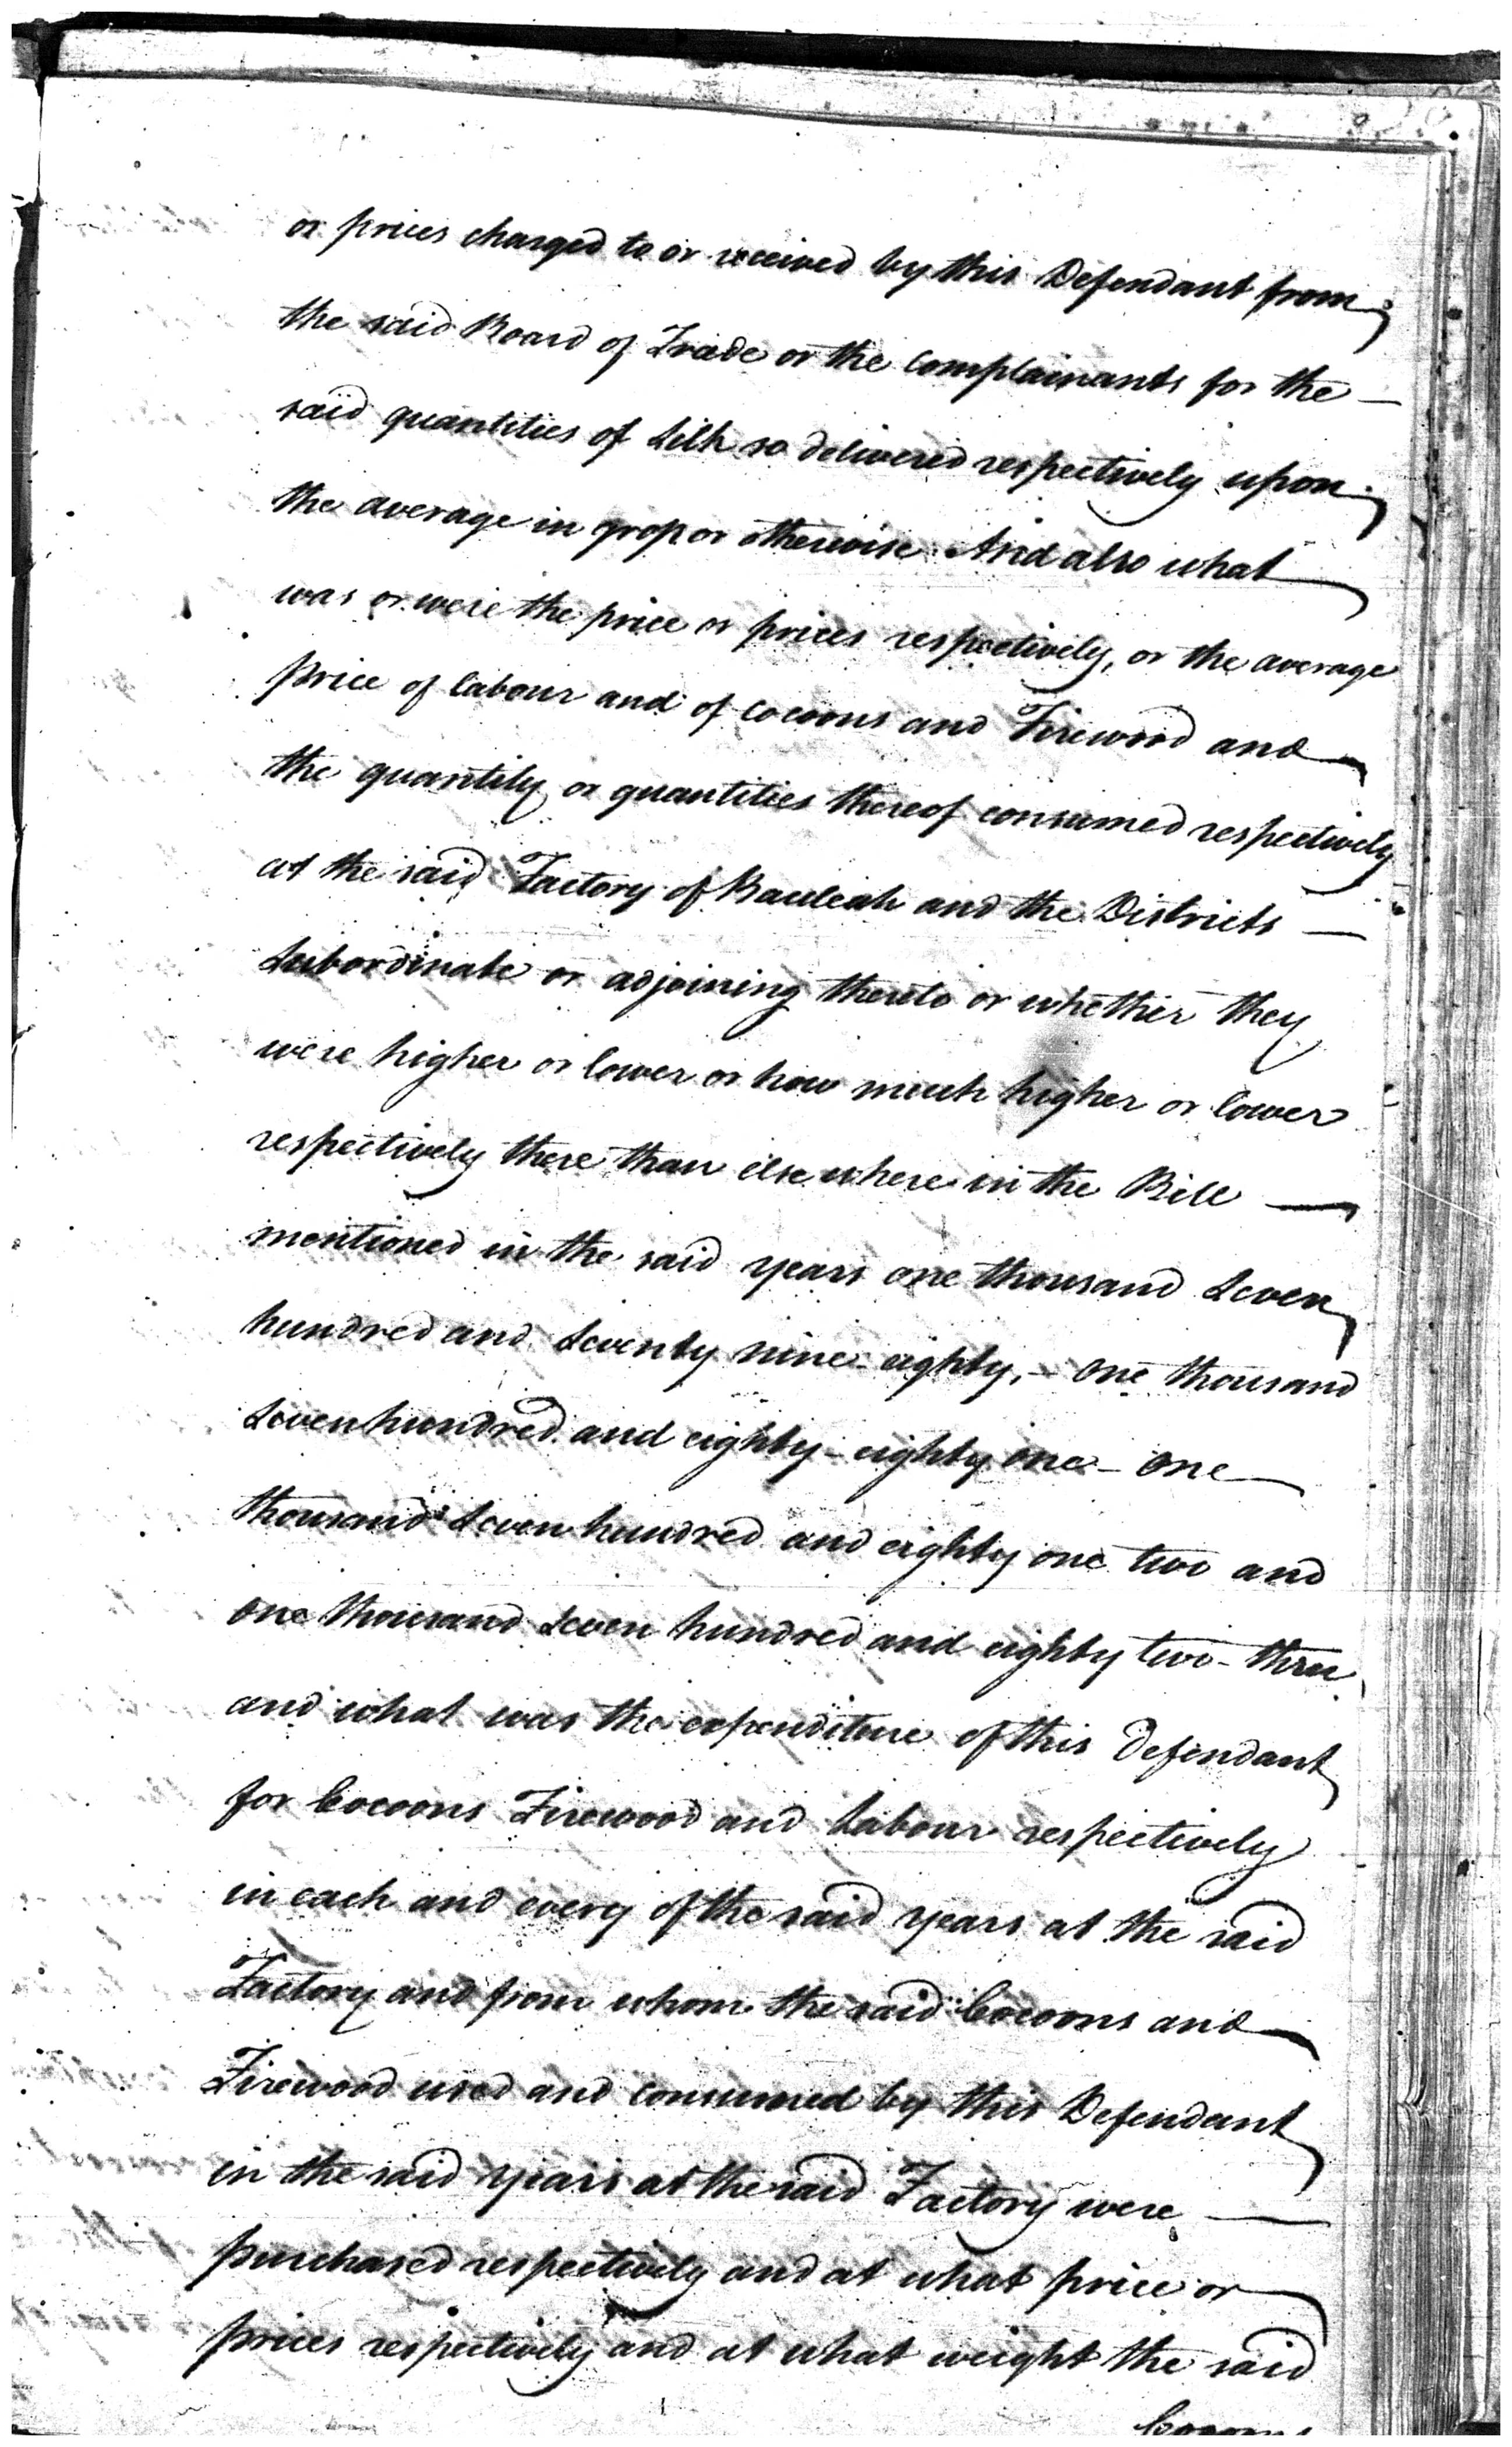 or prices charged to or received by this Defendant from
the said Board of Trade or the Complainants for the —
said quantities of Silk so delivered respectively upon
the average in gross or otherwise And also what
was or were the price or prices respectively, or the average
price of labour and of Cocoons and Firewood and
the quantity or quantities thereof consumed respectively
at the said Factory of Bauleah and the Districts —
Subordinate or adjoining thereto or whether they
were higher or lower or how much higher or lower
respectively there than else where in the Bill —
mentioned in the said years one thousand Seven
hundred and Seventy nine - eighty, - One thousand
Seven hundred and eighty - eighty one - One
thousand Seven hundred and eighty one two and
One thousand Seven hundred and eighty two - three
and what was the expenditure of this Defendant
for Cocoons Firewood and Labour respectively
in each and every of the said years at the said
Factory and from whom the said Cocoons and
Firewood used and consumed by this Defendant
in the said years at the said Factory were —
purchased respectively and at what price or
prices respectively and at what weight the said
Cocoons